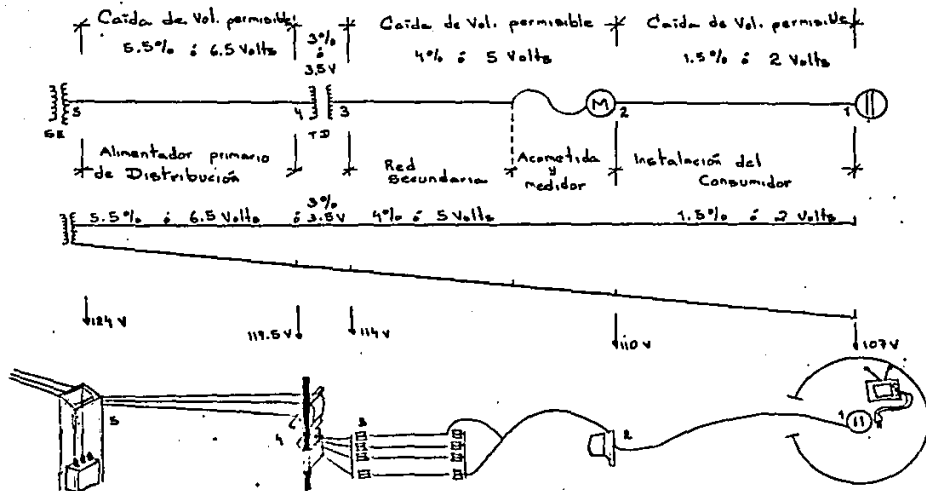 Caida de Vol. permisible
5.5% ó 6.5 Volts
3%
ó
3.5V
Caida de Vol. permisible
4% ó 5 Volts
Caida de Vol. permisible
1.5% ó 2 Volts
SE
5
4
TD
3
M
2
1
Alimentador primario
de Distribución
Red
Secundaria
Acometida
y
medidor
Instalación del
Consumidor
5.5% ó 6.5 Volts
3%
ó 3.5V
4% ó 5 Volts
1.5% ó 2 Volts
124 V
119.5 V
114 V
110 V
107 V
5
4
3
2
1